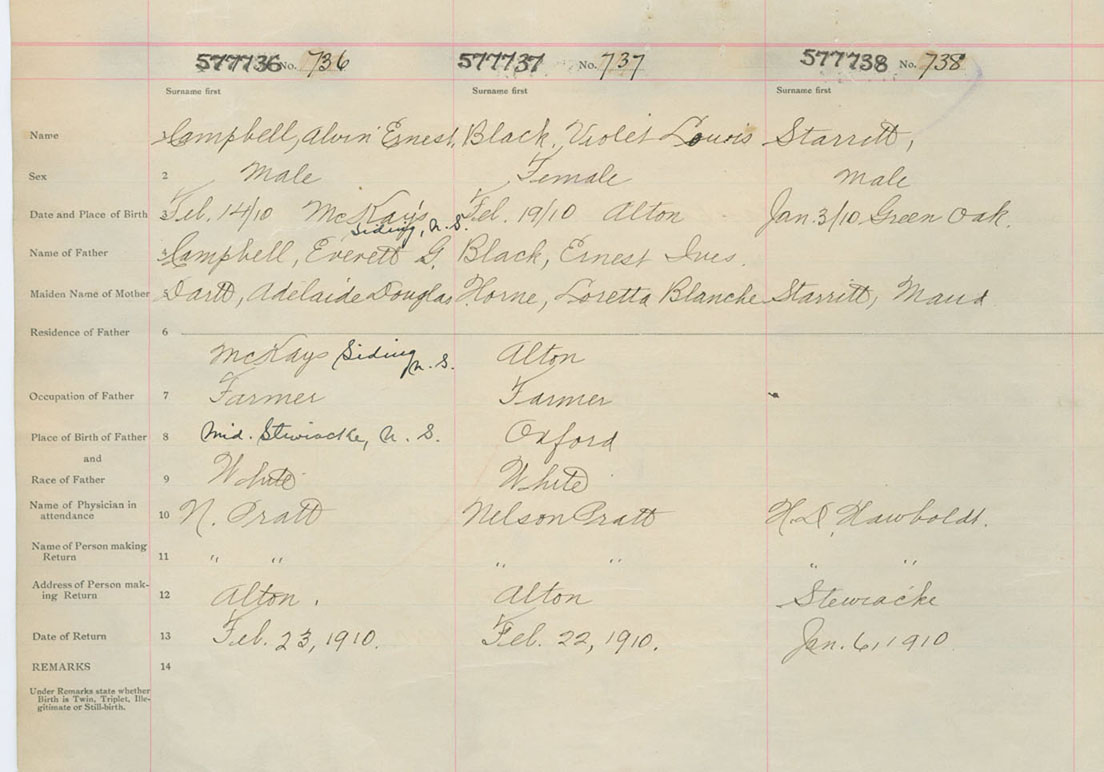 577736 No. 736 577737 No. 737 577738 No. 738
Surname first Surname first Surname first
Name 1 Campbell, Alvin Ernest. Black, Violet Louis Starritt,
Sex 2 Male Female Male
Date and Place of Birth 3 Feb. 14/10 McKay's Siding, N.S. Feb. 19/10 Alton Jan. 3/10 Green Oak.
Name of Father 4 Campbell, Everett G. Black, Ernest Ives.
Maiden Name of Mother 5 Dartt, Adelaide Douglas Horne, Loretta Blanche Starritt, Maud
Residence of Father 6
McKays Siding N.S. Alton
Occupation of Father 7 Farmer Farmer
Place of Birth of Father 8 Mid. Stewiacke, N.S. Oxford
and
Race of Father 9 White White
Name of Physician in
attendance 10 N. Pratt Nelson Pratt H.D. Hawboldt.
Name of Person making
Return 11 " " " " " "
Address of Person mak-
ing Return 12 Alton. Alton Stewiacke
Date of Return 13 Feb. 23, 1910. Feb. 22, 1910. Jan. 6, 1910
REMARKS 14
Under Remarks state whether
Birth is Twin, Triplet, Ille-
gitimate or Still-birth.